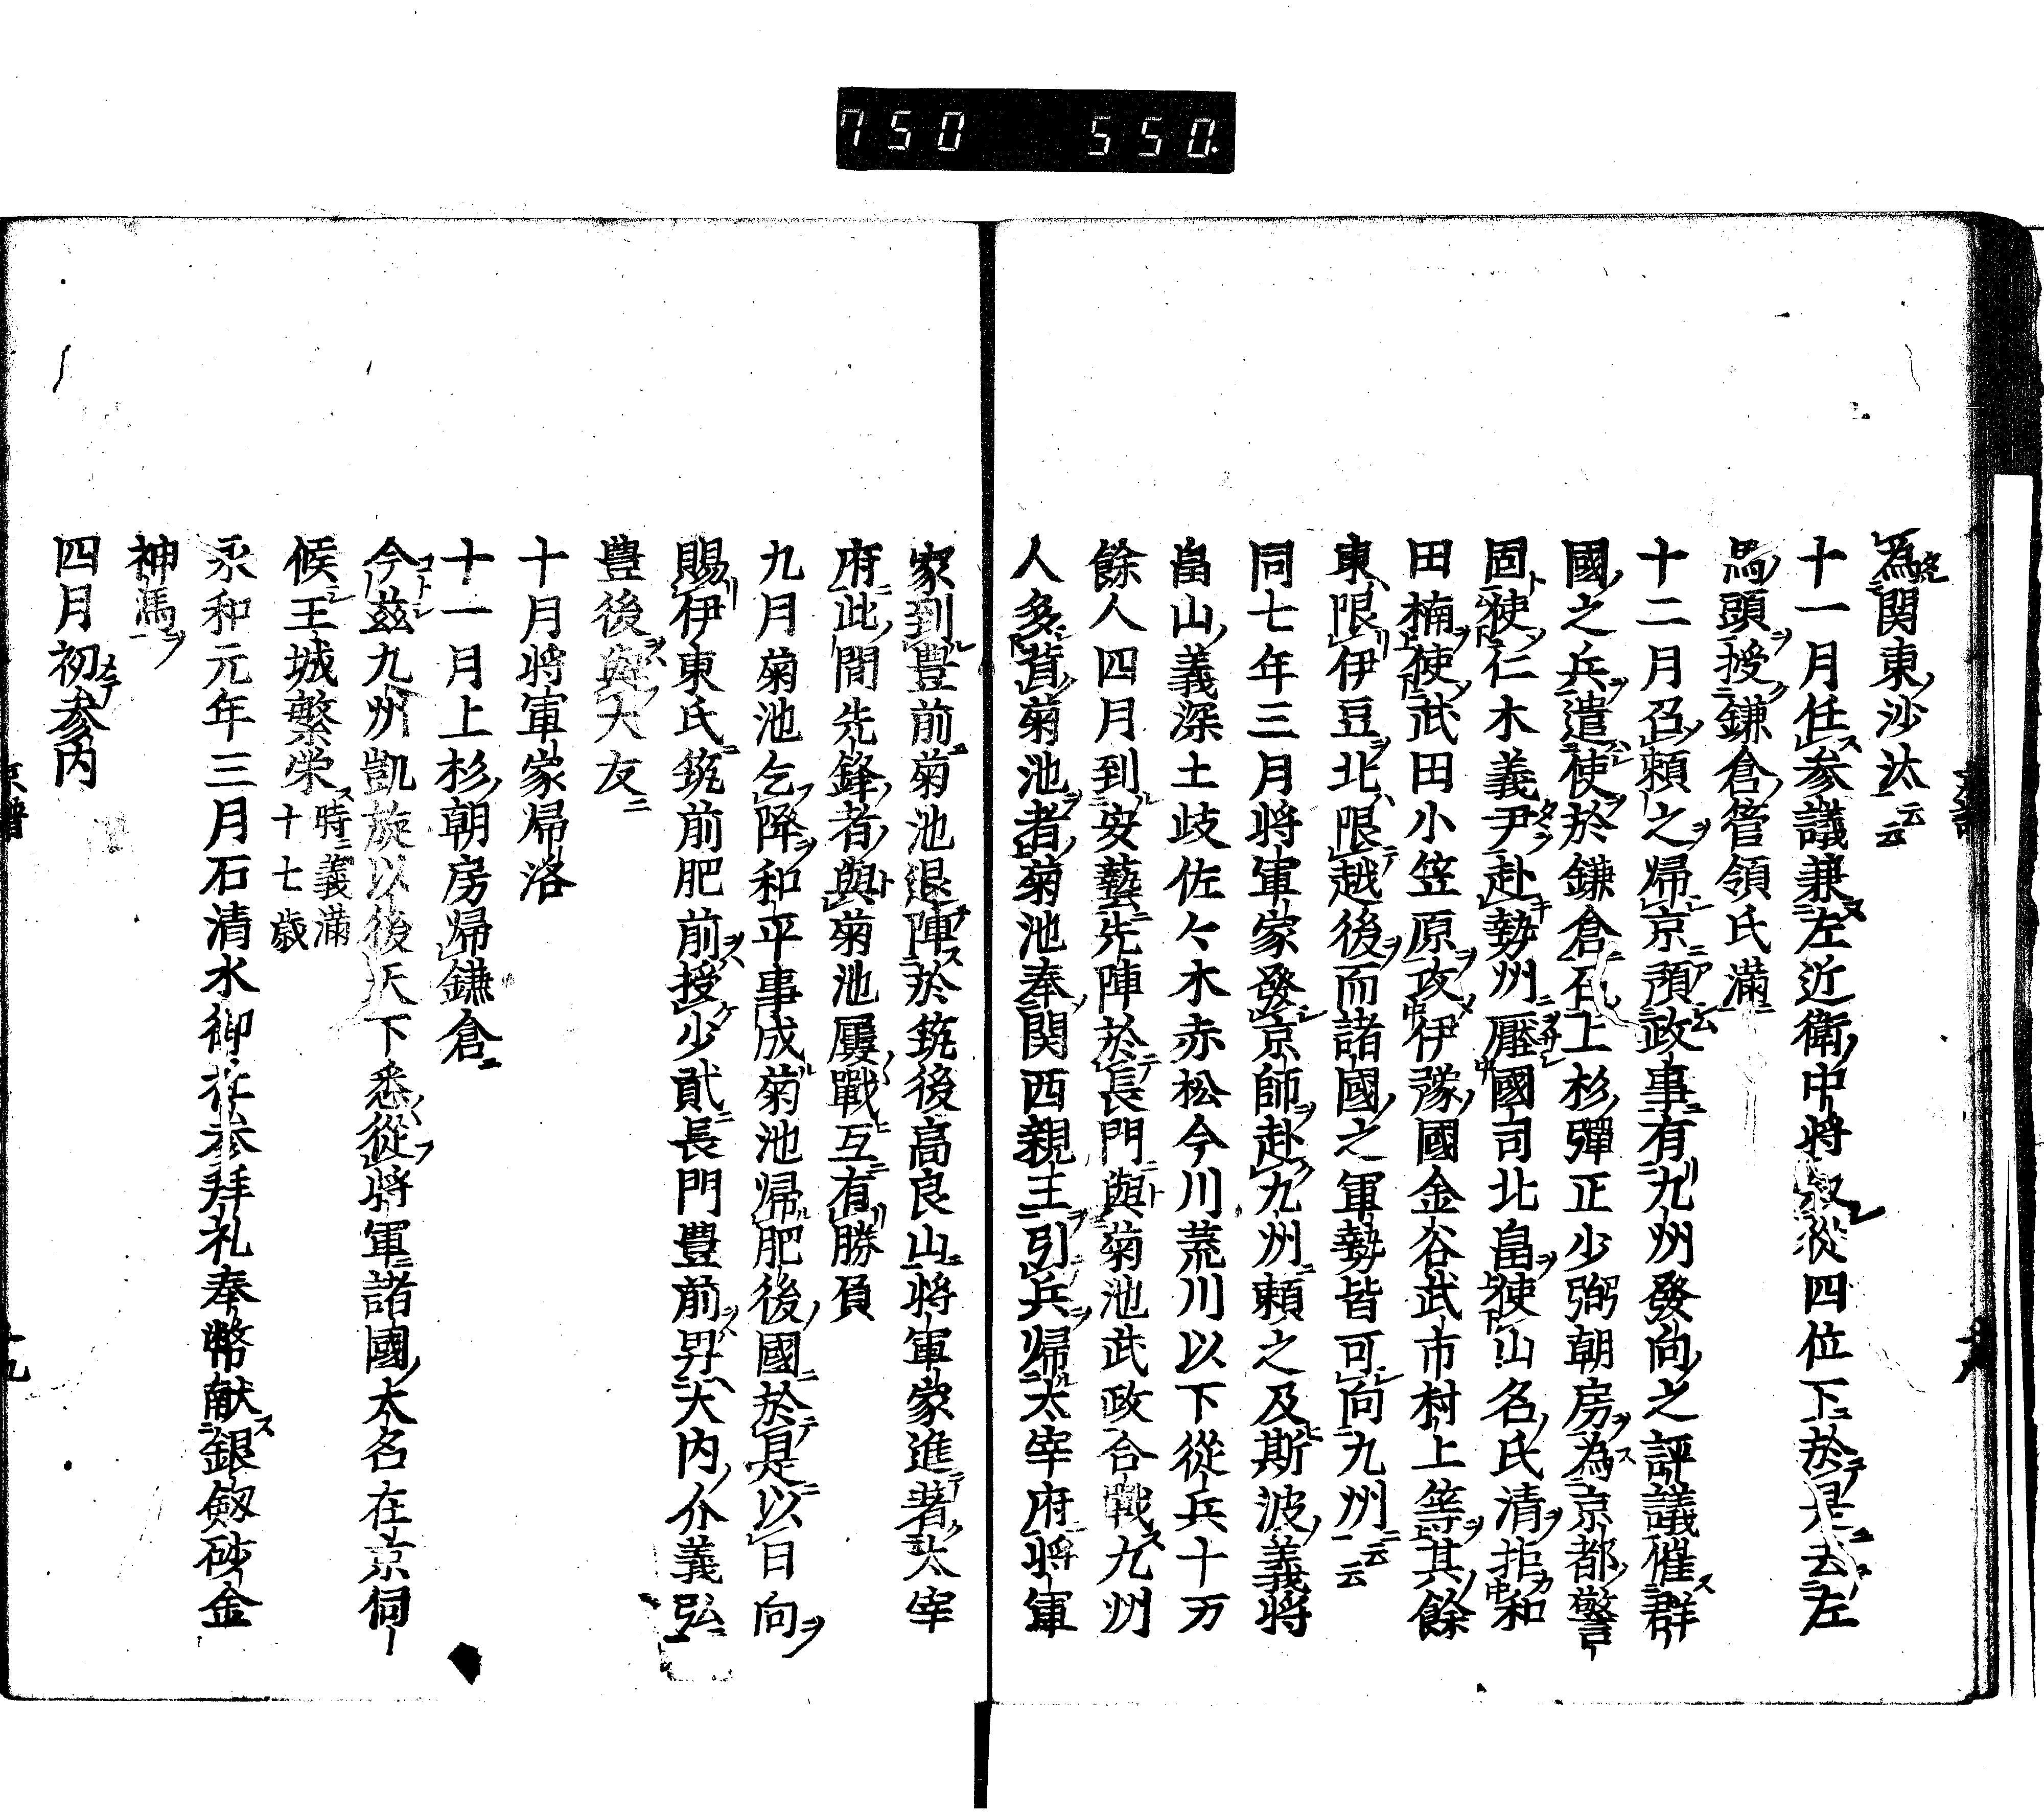 750 550.
為関東沙汰云云
十一月任参議兼左近衛中将叙従四位下於是去左
馬頭授鎌倉管領氏満
十二月召頼之帰京預政事有九州發向之評議催群
國之兵遣使於鎌倉召上杉彈正少弼朝房為京都警
固使仁木義尹赴勢州壓國司北畠使山名氏清拒和
田楠使武田小笠原攻伊豫國金谷武市村上等其餘
東限伊豆北限越後而諸國之軍勢皆可向九州云云
同七年三月将軍家發京師赴九州頼之及斯波義将
畠山義深土岐佐々木赤松今川荒川以下従兵十万
餘人四月到安藝先陣於長門與菊池武政合戰九州
人多背菊池者菊池奉関西親王引兵帰太宰府将軍
家到豊前菊池退陣於筑後高良山将軍家進著太宰
府此間先鋒者與菊池屢戰互有勝負
九月菊池乞降和平事成菊池帰肥後國於是以日向
賜伊東氏筑前肥前授少貳長門豊前畀大内介義弘
豊後與大友
十月将軍家帰洛
十一月上杉朝房帰鎌倉
今茲九州凱旋以後天下悉従将軍諸國大名在京伺
候王城繁栄時義満十七歳
永和元年三月石清水御社参拜礼奉幣献銀劔砂金
神馬
四月初参内